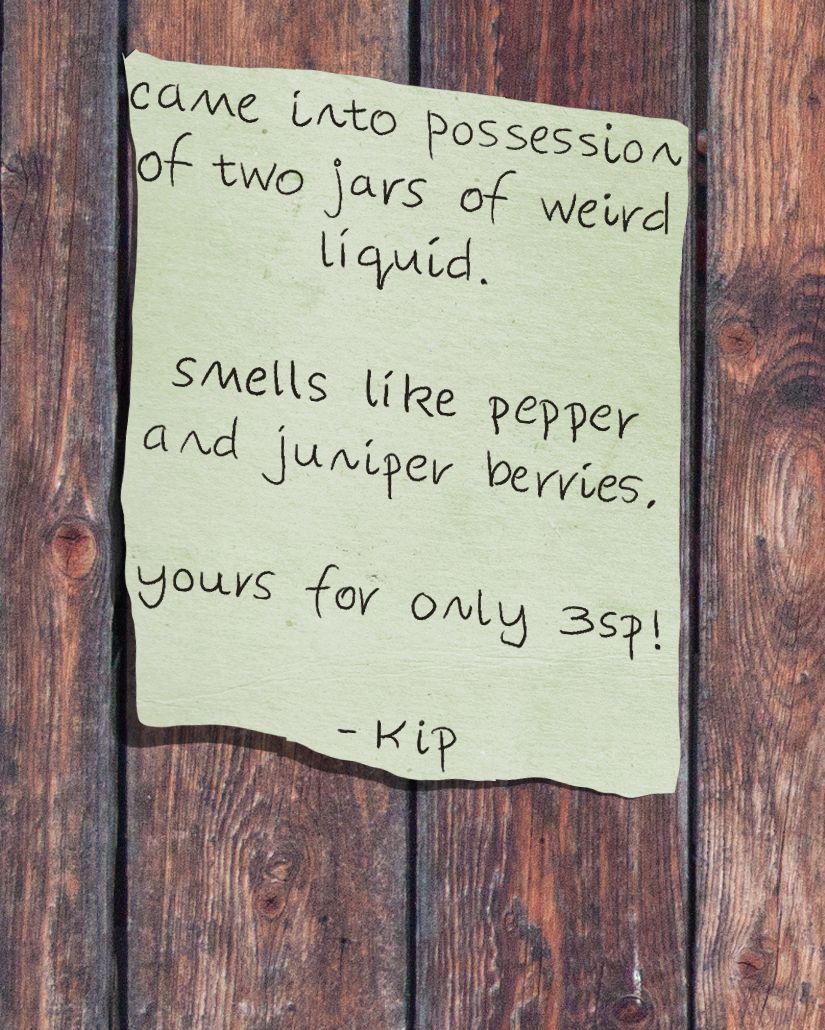 came into possession
of two jars of weird
liquid.
smells like pepper
and juniper berries.
yours for only 3sp!
- Kip